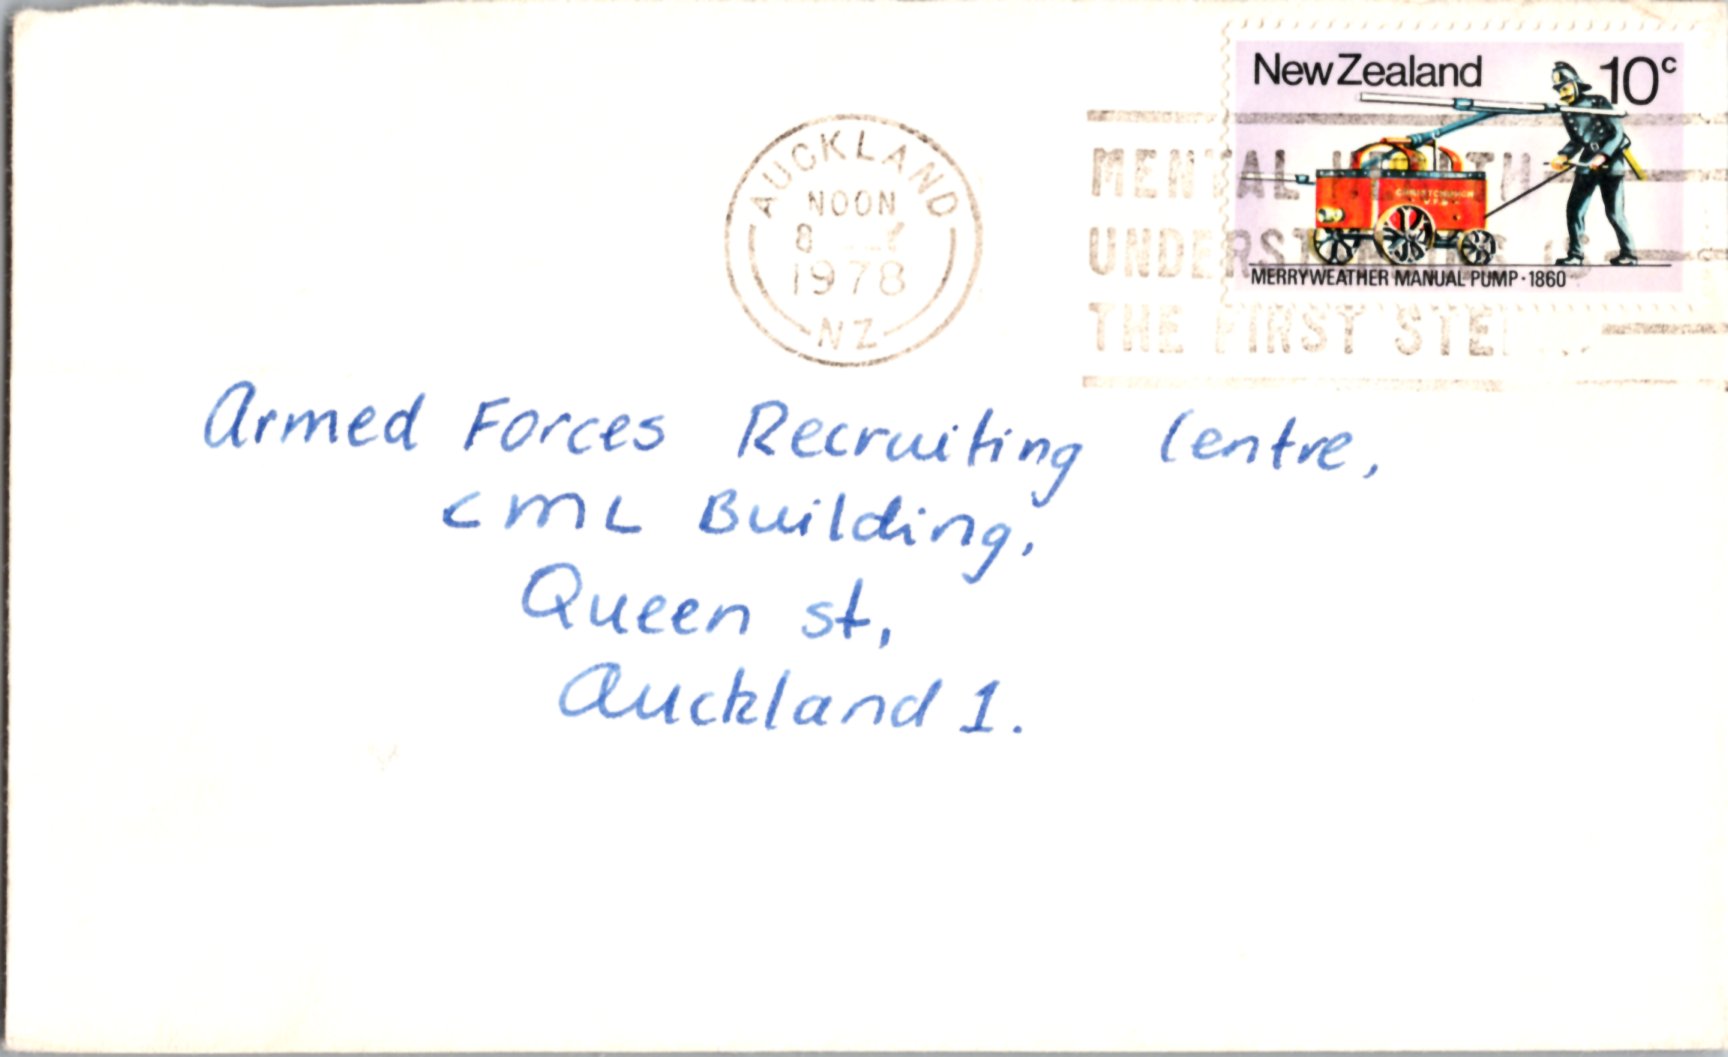 New Zealand 10c
AUCKLAND
NOON
8
1978
NZ
MENTAL HEALTH
UNDERSTANDING IS
THE FIRST STEP
CHRISTCHURCH
MERRYWEATHER MANUAL PUMP · 1860
Armed Forces Recruiting Centre,
CML Building,
Queen st,
Auckland 1.